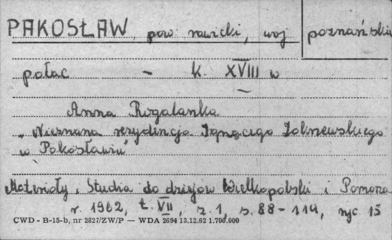 PAKOSŁAW, pow. rawicki, woj. poznańskie
pałac - k. XVIII w
Anna Rogalanka
„Nieznana rezydencja Ignacego Zakrzewskiego
w Pakosławiu"
Materiały i Studia do dziejów Wielkopolski i Pomorza
r. 1962, t. VII, z. 1, s. 88-114, ryc 15
CWD - B-15-b, nr 2827/ZW/P — WDA 2694 13.12.62 1.700.000